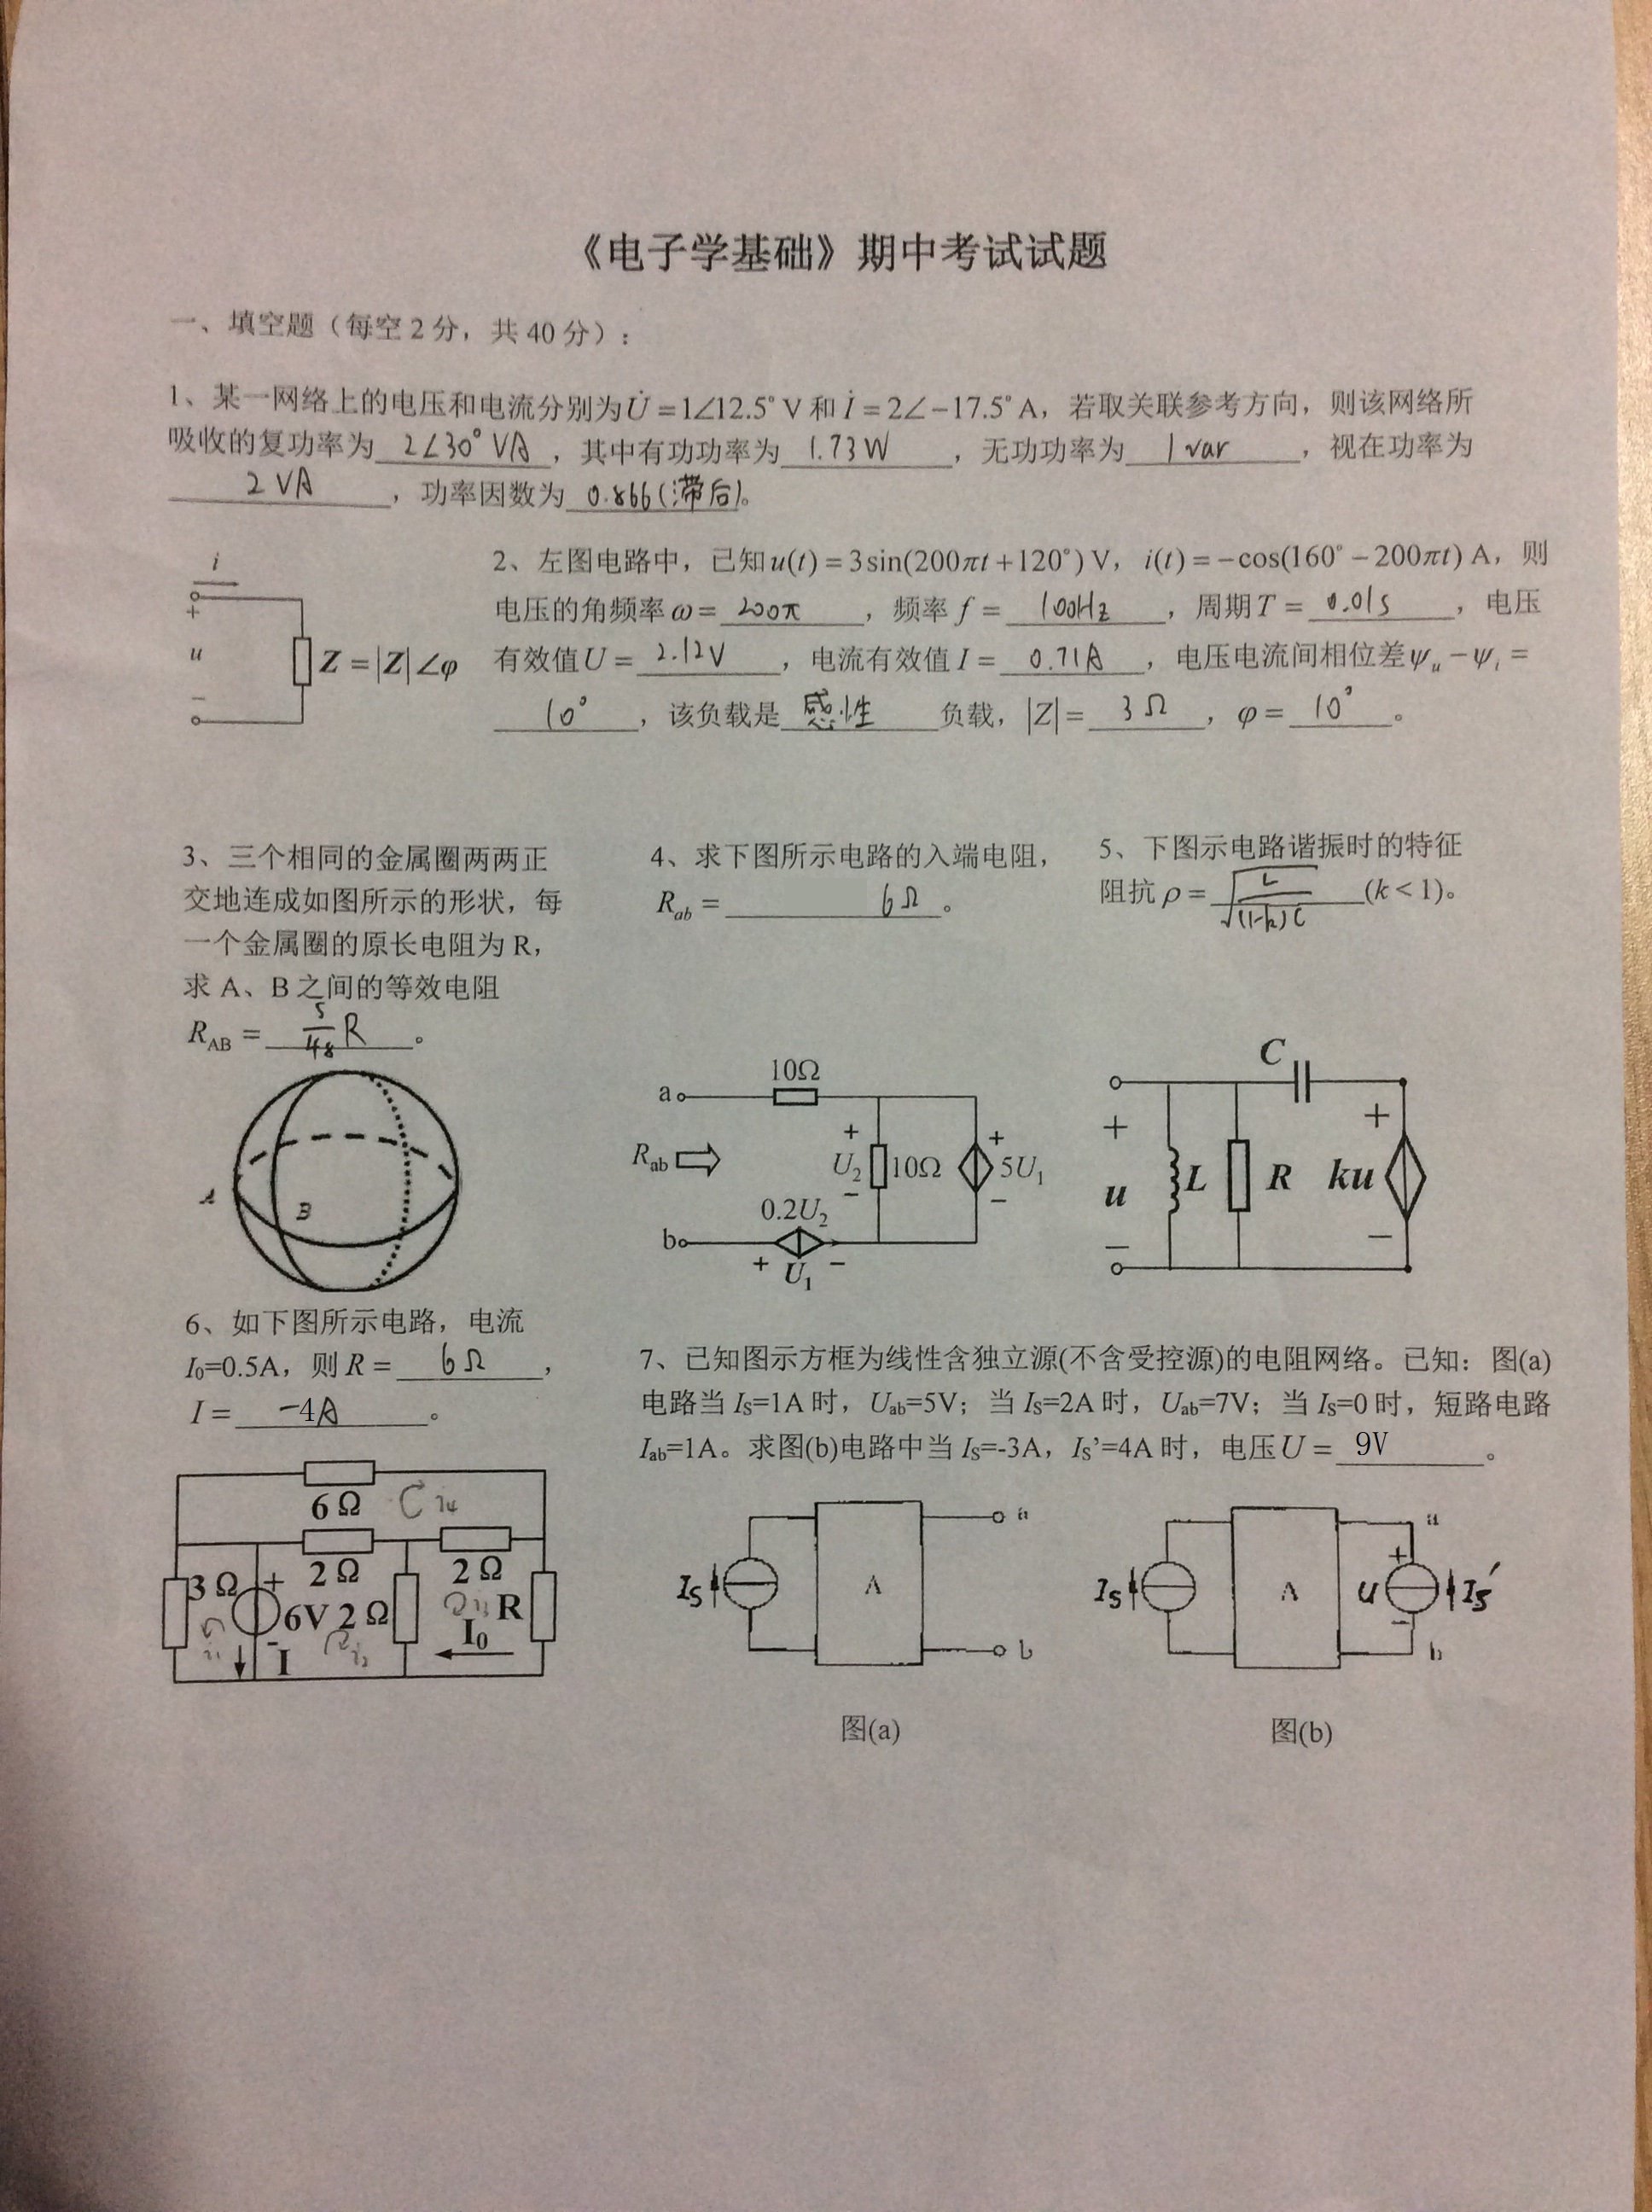 《电子学基础》期中考试试题
一、填空题（每空2分，共40分）：
1、某一网络上的电压和电流分别为U̇=1∠12.5°V和İ=2∠-17.5°A，若取关联参考方向，则该网络所
吸收的复功率为 2∠30° VA ，其中有功功率为 1.73W ，无功功率为 1 var ，视在功率为
2 VA ，功率因数为 0.866(滞后)。
i
+
u
−
Z=|Z|∠φ
2、左图电路中，已知u(t)=3sin(200πt+120°)V，i(t)=-cos(160°-200πt)A，则
电压的角频率ω= 200π ，频率f= 100Hz ，周期T= 0.01s ，电压
有效值U= 2.12V ，电流有效值I= 0.71A ，电压电流间相位差ψu-ψi=
10° ，该负载是 感性 负载，|Z|= 3Ω ，φ= 10° 。
3、三个相同的金属圈两两正
交地连成如图所示的形状，每
一个金属圈的原长电阻为R，
求A、B之间的等效电阻
RAB= 5/48 R 。
A
B
4、求下图所示电路的入端电阻，
Rab= 6Ω 。
10Ω
a
Rab
+
U2
−
10Ω
+
5U1
−
0.2U2
b
+ U1 −
5、下图示电路谐振时的特征
阻抗ρ= √(L/((1-k)C)) (k<1)。
C
+
u
−
L
R
ku
+
−
6、如下图所示电路，电流
I0=0.5A，则R= 6Ω ，
I= -4A 。
6Ω
i4
2Ω
2Ω
3Ω
+
6V
-
2Ω
R
i1
i2
i3
I
I0
7、已知图示方框为线性含独立源(不含受控源)的电阻网络。已知：图(a)
电路当IS=1A时，Uab=5V；当IS=2A时，Uab=7V；当IS=0时，短路电路
Iab=1A。求图(b)电路中当IS=-3A，IS’=4A时，电压U= 9V 。
IS
A
a
b
图(a)
IS
A
a
+
U
−
IS′
b
图(b)